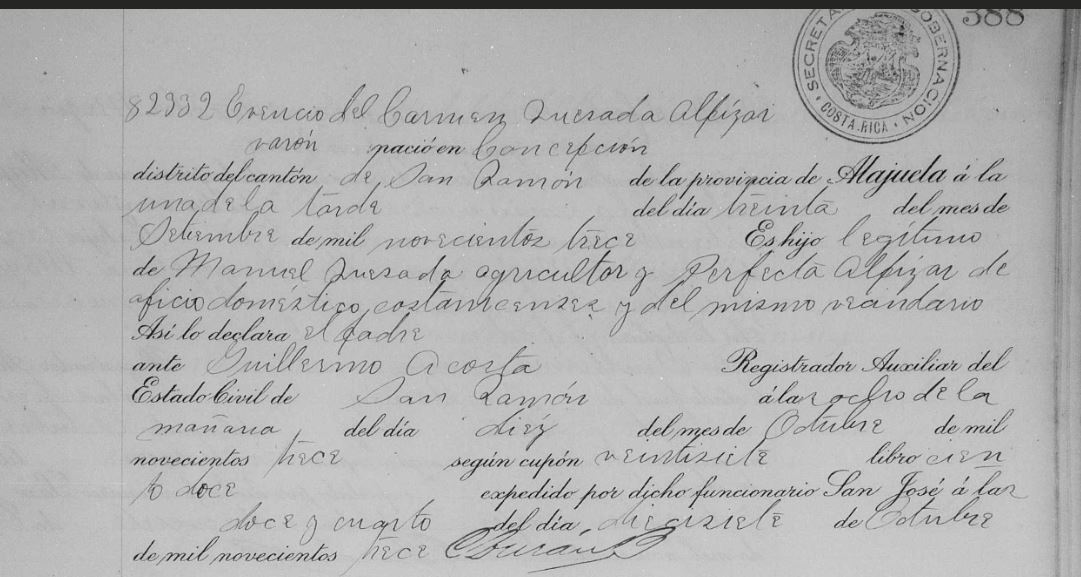 388
SECRETA GOBERNACION
COSTA.RICA
82932 Evencio del Carmen Quesada Alpízar
varón nació en Concepción
distrito del cantón de San Ramón de la provincia de Alajuela á la
una de la tarde del día treinta del mes de
Setiembre de mil novecientos trece Es hijo legítimo
de Manuel Quesada agricultor y Perfecta Alpízar de
oficio doméstico, costarricenses y del mismo vecindario
Así lo declara el padre
ante Guillermo Acosta Registrador Auxiliar del
Estado Civil de San Ramón á las ocho de la
mañana del día diez del mes de Octubre de mil
novecientos trece según cupón veintisiete libro cien
to doce expedido por dicho funcionario San José á las
doce y cuarto del día diecisiete de Octubre
de mil novecientos trece